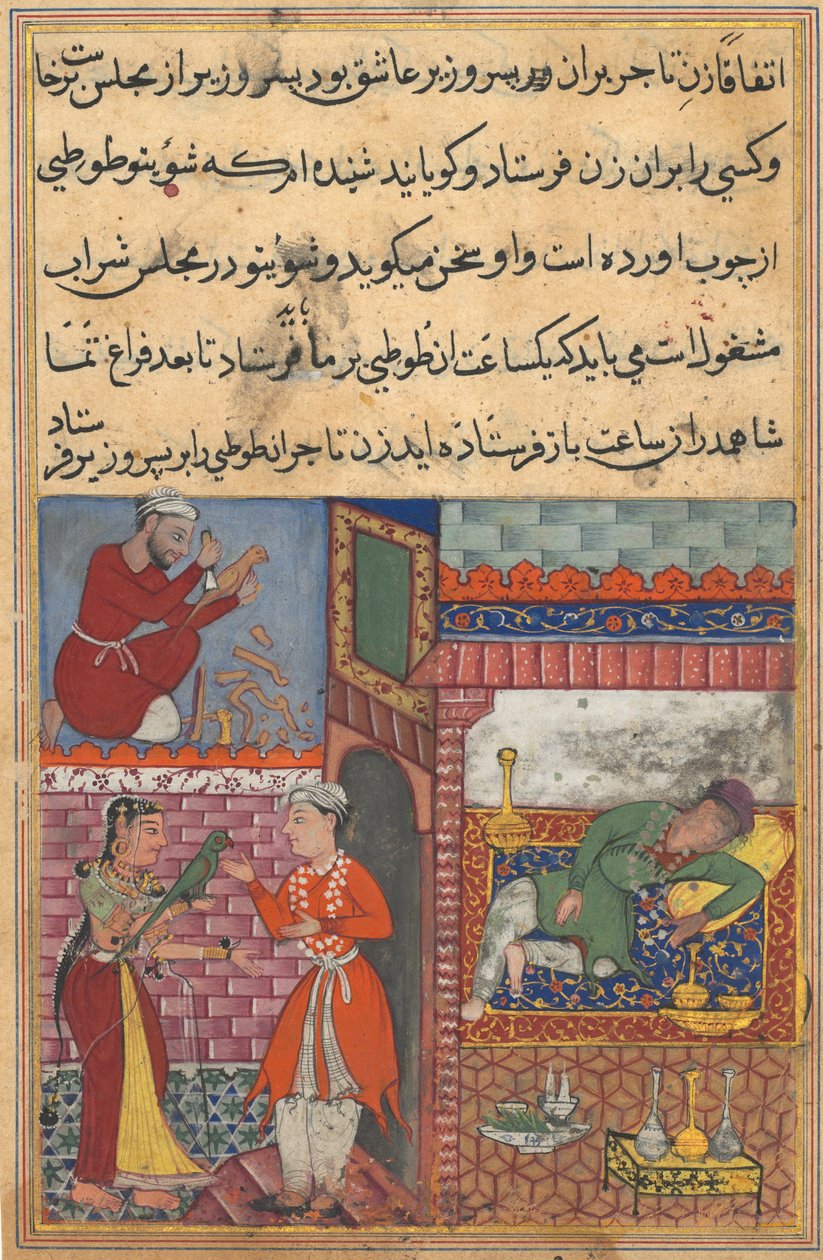 اتفاقًا زنِ تاجر بران پسر وزیر عاشق بود پسر وزیر از مجلس برخاست
و کسی را بران زن فرستاد و کویانید شنیده ام که شوٴیتو طوطیی
از چوب اورده است و او سخن میکوید و شوٴیتو در مجلس شراب
مشغول است می باید که یکساعت ان طوطیی بر ما باید فرستاد تا بعد فراغ تماَ
شا همدران ساعت باز فرستاده اید زن تاجر ان طوطیی را بر پسر وزیر فرستاد